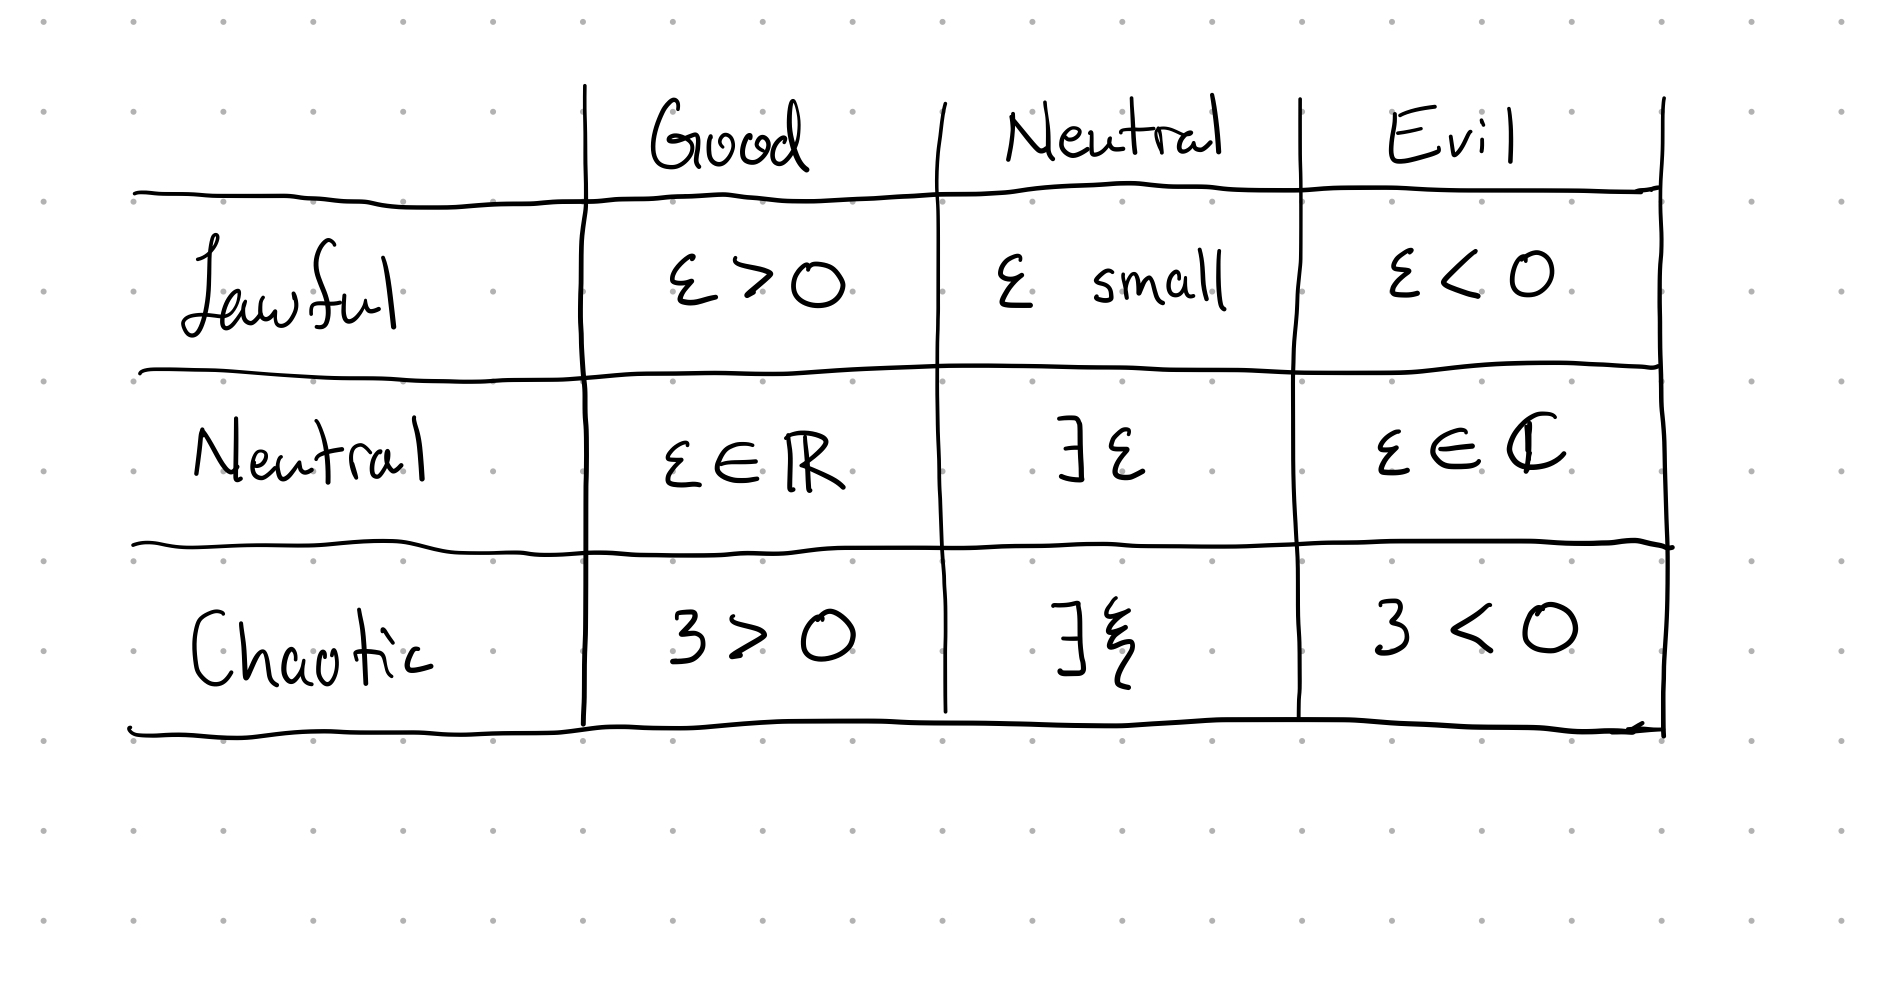 Good Neutral Evil
Lawful ε > 0 ε small ε < 0
Neutral ε ∈ ℝ ∃ ε ε ∈ ℂ
Chaotic 3 > 0 ∃ ξ 3 < 0